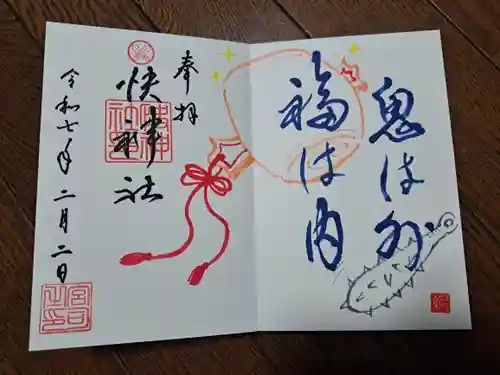 鬼は外
福は内
奉拝
快神社
令和七年二月二日
宮司之印